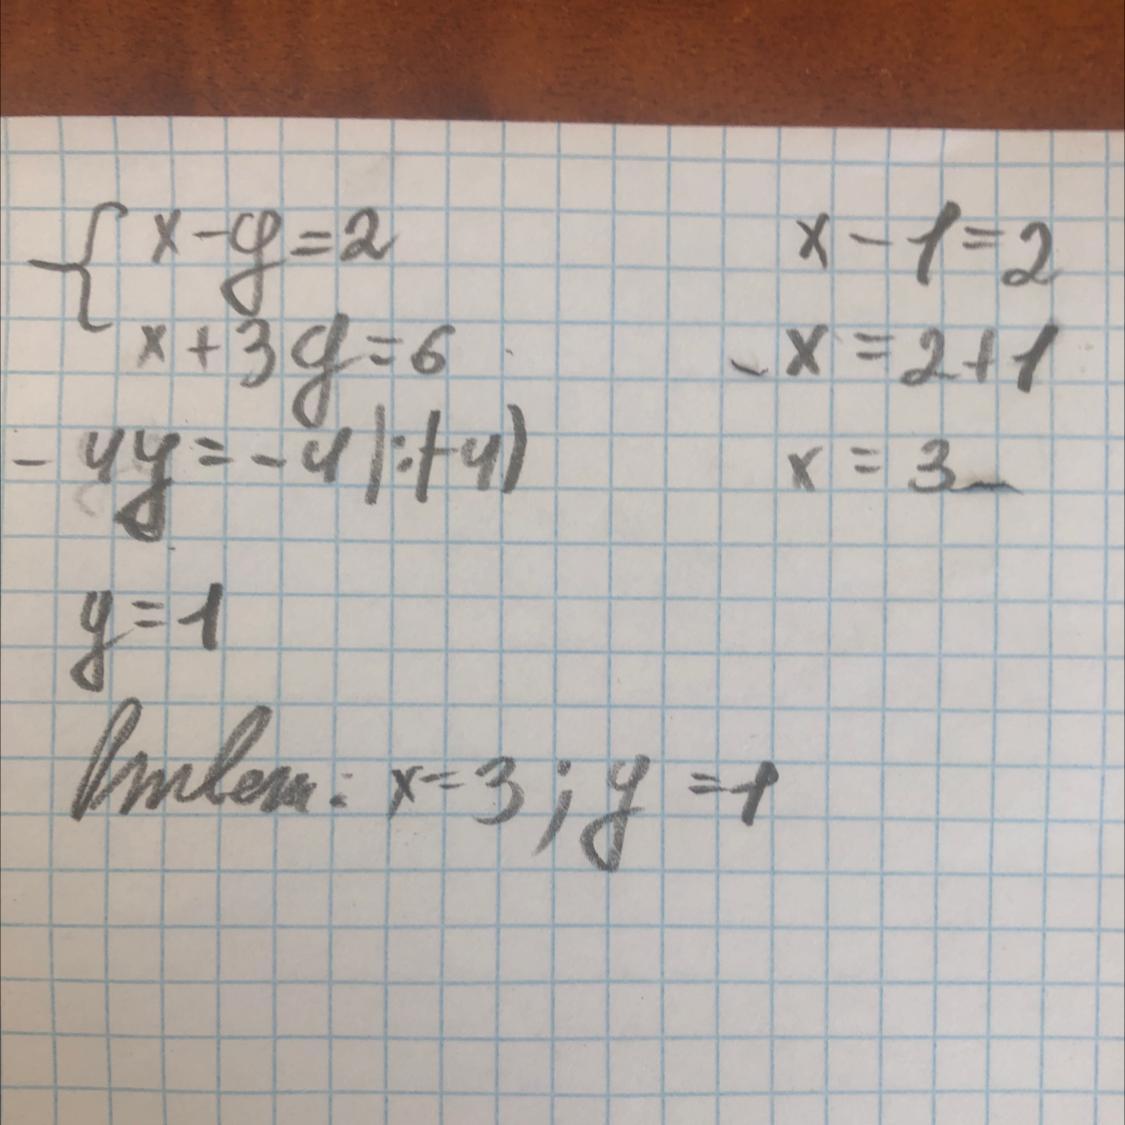 { x - y = 2
x + 3y = 6
- 4y = -4 |:(-4)
y = 1
x - 1 = 2
x = 2+1
x = 3
Ответ: x = 3; y = 1